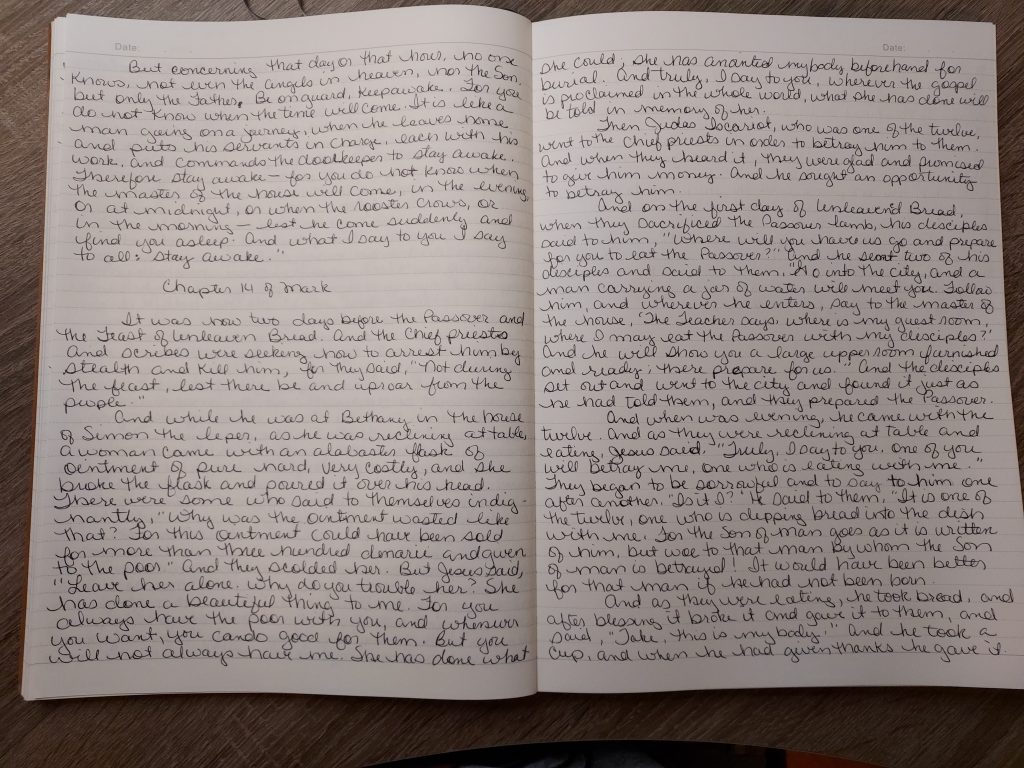 Date:
But concerning that day or that hour, no one
knows, not even the angels in heaven, nor the Son,
but only the Father. Be on guard, keep awake. For you
do not know when the time will come. It is like a
man going on a journey, when he leaves home
and puts his servants in charge, each with his
work, and commands the doorkeeper to stay awake.
Therefore stay awake — for you do not know when
the master of the house will come, in the evening,
or at midnight, or when the rooster crows, or
in the morning — lest he come suddenly and
find you asleep. And what I say to you I say
to all: Stay awake."
Chapter 14 of Mark
It was now two days before the Passover and
the Feast of Unleaven Bread. And the Chief priests
and scribes were seeking how to arrest him by
stealth and kill him, for they said, "Not during
the feast, lest there be and uproar from the
people."
And while he was at Bethany in the house
of Simon the leper, as he was reclining at table,
a woman came with an alabaster flask of
ointment of pure nard, very costly, and she
broke the flask and poured it over his head.
There were some who said to themselves indig-
nantly, "Why was the ointment wasted like
that? For this ointment could have been sold
for more than three hundred denarii and given
to the poor." And they scolded her. But Jesus said,
"Leave her alone. Why do you trouble her? She
has done a beautiful thing to me. For you
always have the poor with you, and whenever
you want, you can do good for them. But you
will not always have me. She has done what
Date:
she could; she has anointed my body beforehand for
burial. And truly, I say to you, wherever the gospel
is proclaimed in the whole world, what she has done will
be told in memory of her.
Then Judas Iscariot, who was one of the twelve,
went to the Chief priests in order to betray him to them.
And when they heard it, they were glad and promised
to give him money. And he sought an opportunity
to betray him.
And on the first day of Unleaven'd Bread,
when they sacrificed the Passover lamb, his disciples
said to him, "Where will you have us go and prepare
for you to eat the Passover?" And he sent two of his
disciples and said to them, "Go into the city, and a
man carrying a jar of water will meet you. Follow
him, and wherever he enters, say to the master of
the house, 'The Teacher says, where is my guest room,
where I may eat the Passover with my disciples?'
And he will show you a large upper room furnished
and ready; there prepare for us." And the disciples
set out and went to the city and found it just as
he had told them, and they prepared the Passover.
And when was evening, he came with the
twelve. And as they were reclining at table and
eating, Jesus said, "Truly, I say to you, one of you
will betray me, one who is eating with me."
They began to be sorrowful and to say to him one
after another, "Is it I?" He said to them, "It is one of
the twelve, one who is dipping bread into the dish
with me. For the Son of man goes as it is written
of him, but woe to that man by whom the Son
of man is betrayed! It would have been better
for that man if he had not been born.
And as they were eating, he took bread, and
after blessing it broke it and gave it to them, and
said, "Take, this is my body." And he took a
cup, and when he had given thanks he gave it